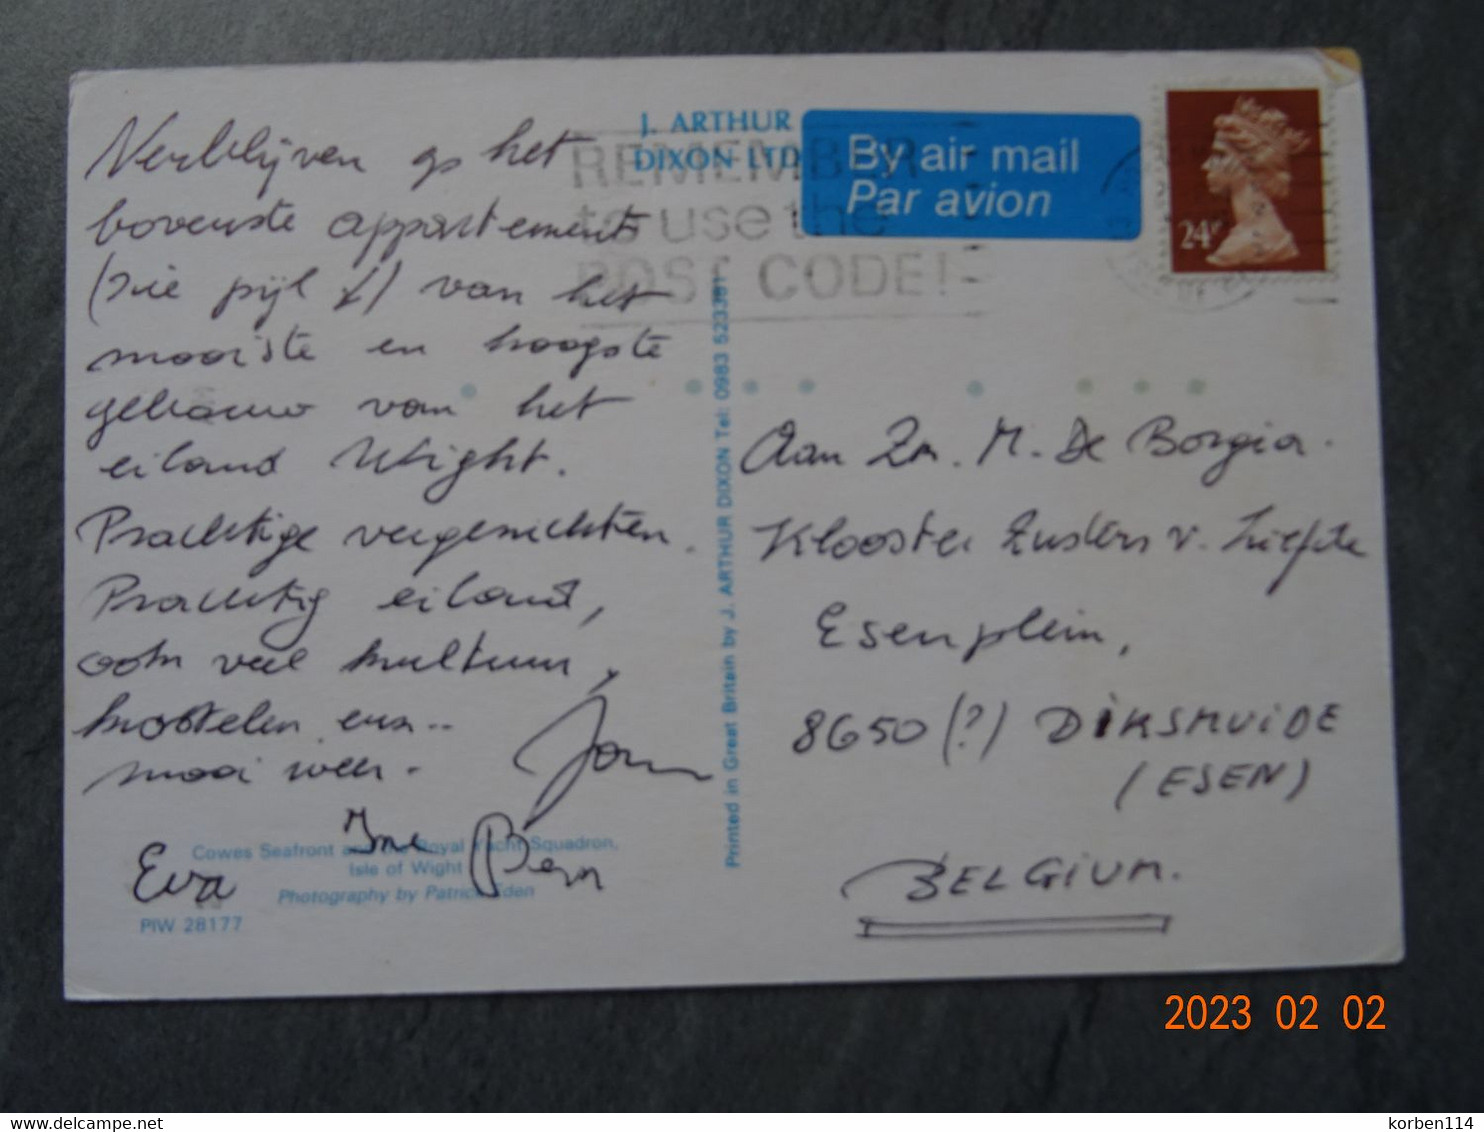 Verblijven op het
bovenste appartement
(zie pijl ↓) van het
mooiste en hoogste
gebouw van het
eiland Wight.
Prachtige vergezichten.
Prachtig eiland,
ook veel kultuur,
kastelen enz..
mooi weer.
Eva
Ine
Cowes Seafront and the Royal Yacht Squadron,
Isle of Wight
Photography by Patrick Eden
PIW 28177
J. ARTHUR
DIXON LTD
REMEMBER
to use the
POST CODE!
By air mail
Par avion
24P
Printed in Great Britain by J. ARTHUR DIXON Tel: 0983 523381
Aan Zr. M. De Borgia.
Klooster Zusters v. Liefde
Esenplein,
8650 (?) DIKSMUIDE
(ESEN)
BELGIUM.
2023 02 02
korben114
www.delcampe.net